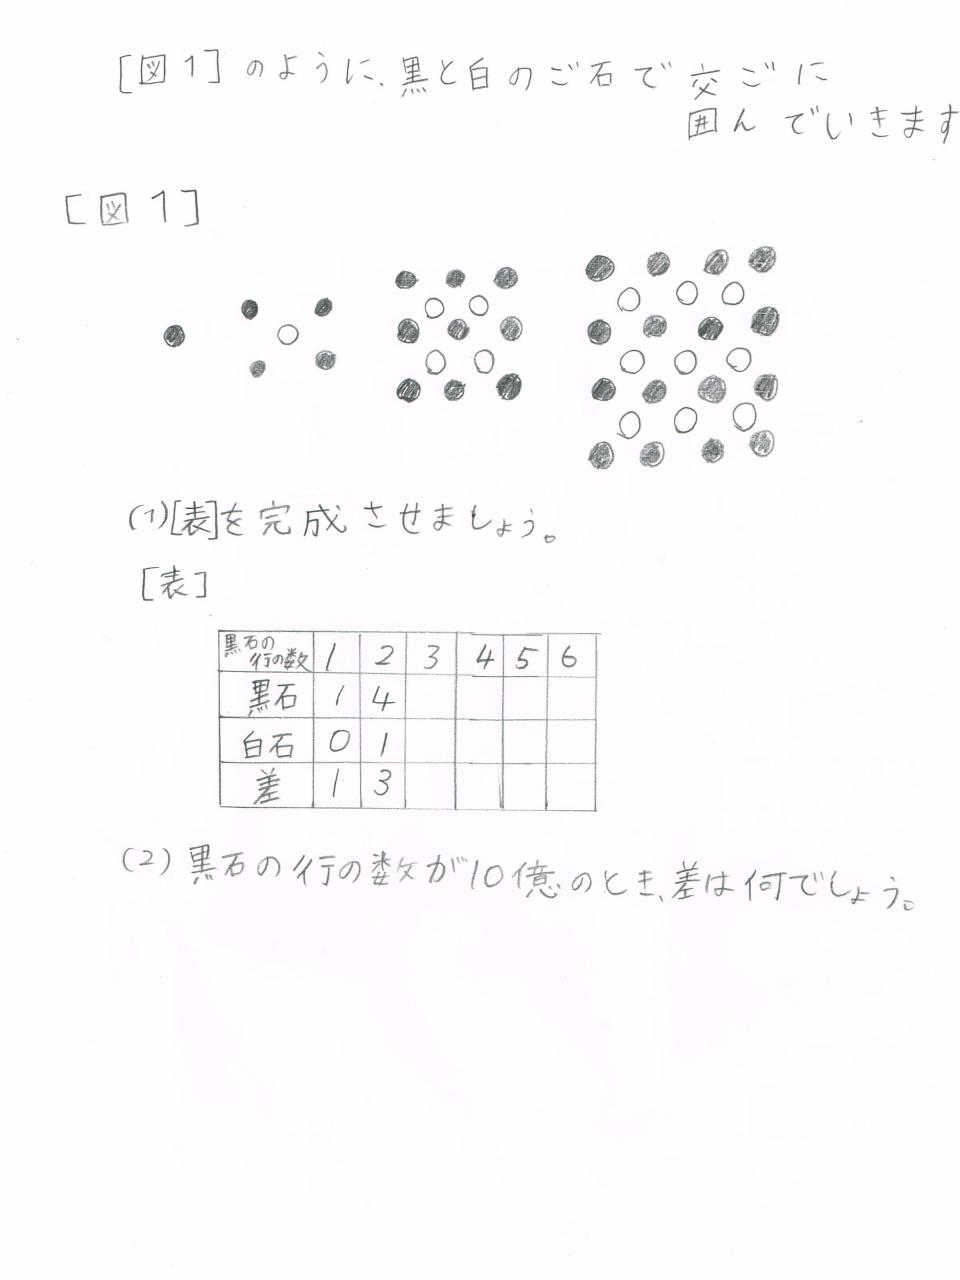 [図1]のように、黒と白のご石で交ごに
囲んでいきます
[図1]
(1)[表]を完成させましょう。
[表]
黒石の行の数 1 2 3 4 5 6
黒石 1 4
白石 0 1
差 1 3
(2)黒石の行の数が10億のとき、差は何でしょう。